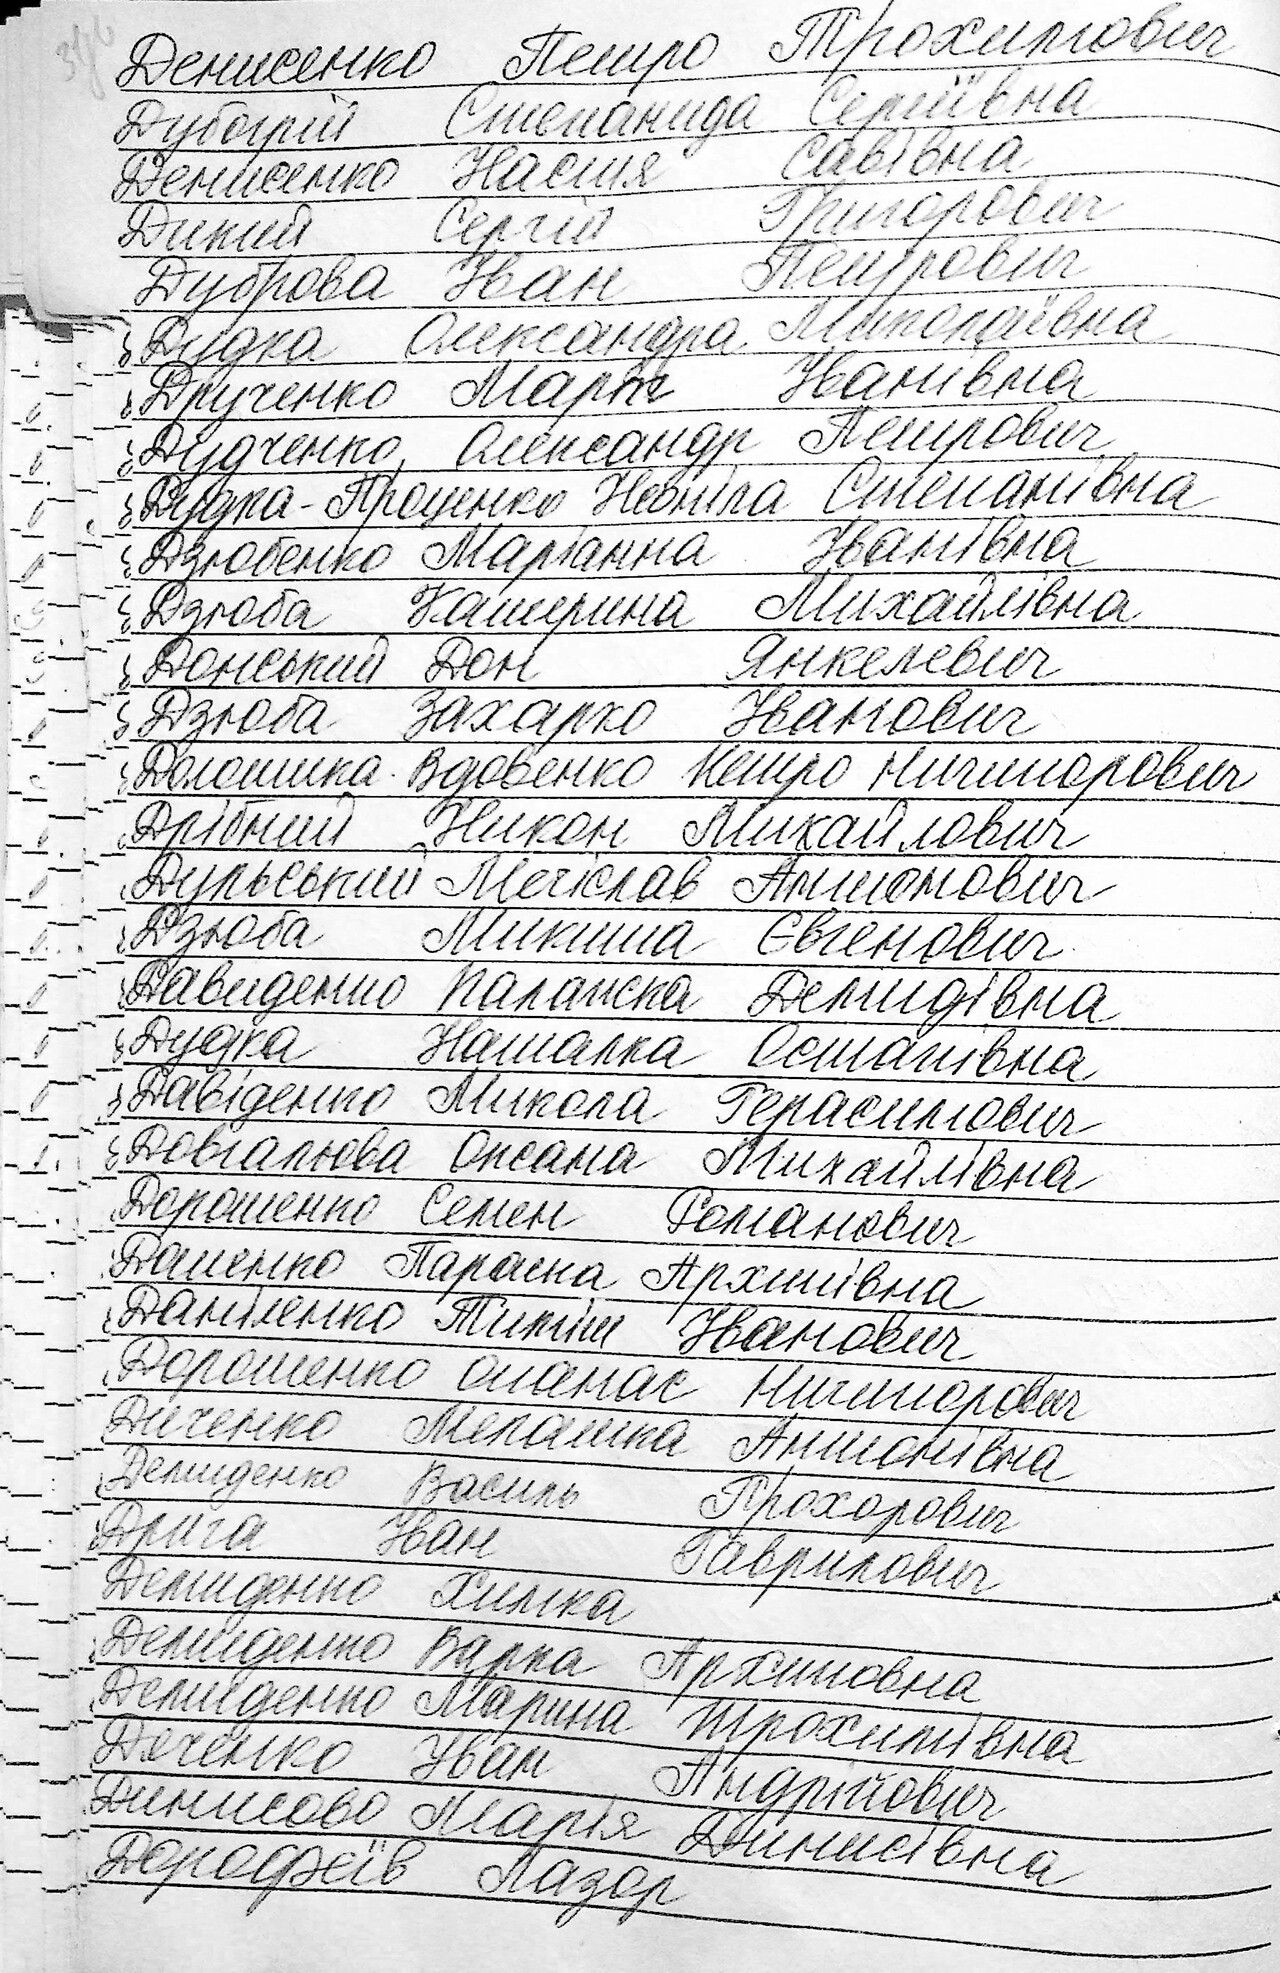 Денисенко Петро Трохимович
Дубогрій Степанида Сергіївна
Денисенко Настя Савівна
Дикий Сергій Григорович
Дуброва Іван Петрович
Дудка Олександра Миколаївна
Друченко Марія Іванівна
Дудченко Олександр Петрович
Дудка-Проценко Неоніла Степанівна
Дзюбенко Маріанна Іванівна
Дзюба Катерина Михайлівна
Донський Дон Янкелевич
Дзюба Захарко Іванович
Вдовенко Петро Ничипорович
Дрібний Никон Михайлович
Дульський Мечіслав Антонович
Дзюба Микита Євгенович
Давиденко Палажка Демидівна
Дудка Наталка Остапівна
Давіденко Микола Герасимович
Довгальова Оксана Михайлівна
Дорошенко Семен Романович
Даценко Параска Архипівна
Даніленко Тиміш Іванович
Дорошенко Опанас Ничипорович
Диченко Мелашка Антонівна
Демиденко Василь Прохорович
Дрига Іван Гаврилович
Демиденко Химка
Демиденко Варка Архиповна
Демиденко Марина Трохимівна
Дяченко Іван Андрійович
Динисово Марія Динисівна
Дорофеїв Лазар